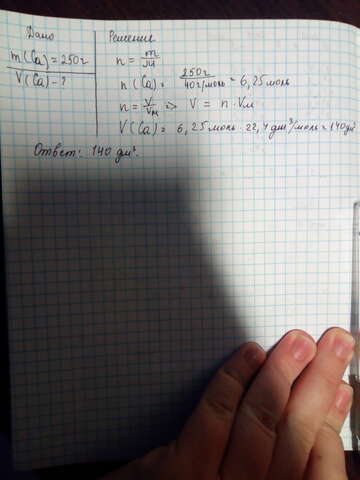 Дано
Решение
m(Ca)=250г
n = m/M
V(Ca) - ?
n(Ca) = 250г/40г/моль = 6,25моль
n = V/Vм => V = n · Vм
V(Ca) = 6,25моль · 22,4дм³/моль = 140дм³
Ответ: 140 дм³.